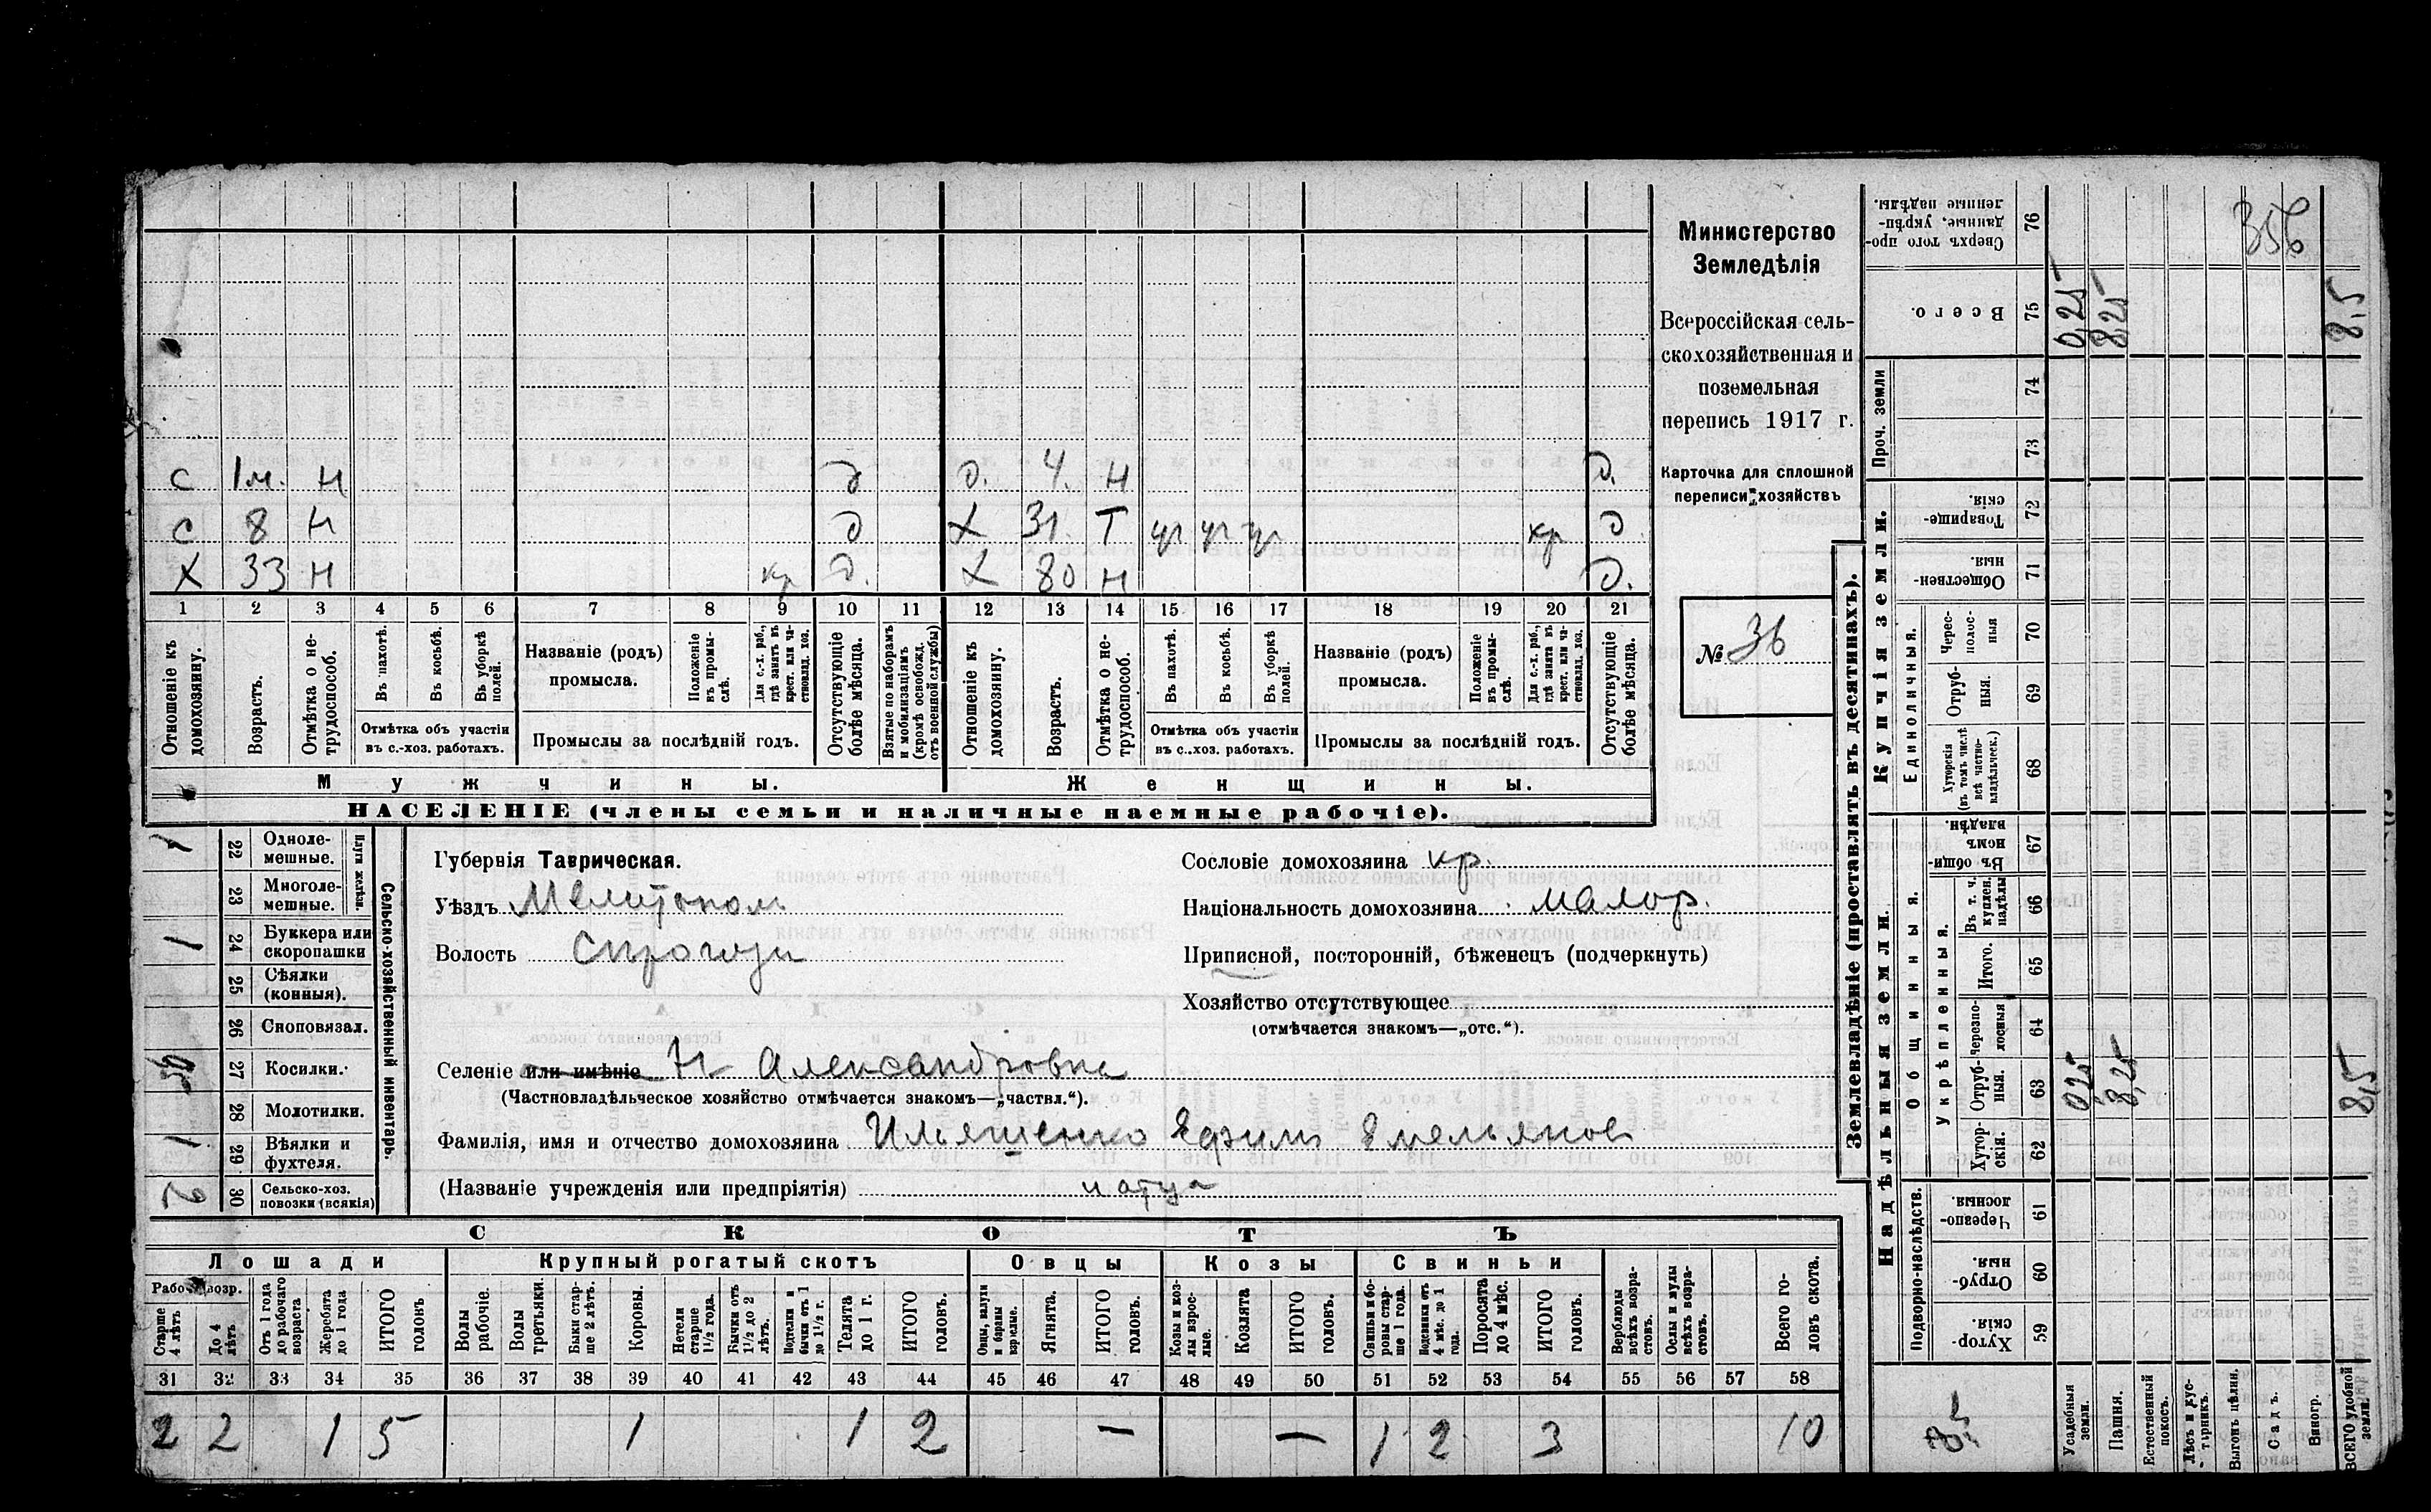 Министерство
Земледѣлія
Всероссійская сель-
скохозяйственная и
поземельная
перепись 1917 г.
Карточка для сплошной
переписи хозяйствъ
№ 36
356
с 1м. н д д. 4. н д.
с 8 н д х 31. т кр д
х 33 н кр д. х 80 н д.
1 2 3 4 5 6 7 8 9 10 11 12 13 14 15 16 17 18 19 20 21
Отношеніе къ домохозяину.
Возрастъ.
Отмѣтка о не-трудоспособ.
Въ пахотѣ.
Въ косьбѣ.
Въ уборкѣ полей.
Отмѣтка объ участіи
въ с.-хоз. работахъ.
Названіе (родъ)
промысла.
Положеніе въ промы-слѣ.
Для с.-х. раб., гдѣ занятъ въ крест. или ча-стновлад. хоз.
Промыслы за послѣдній годъ.
Отсутствующіе болѣе мѣсяца.
Взятые по наборамъ и мобилизаціямъ (кромѣ освобожд. отъ военной службы)
Отношеніе къ домохозяину.
Возрастъ.
Отмѣтка о не-трудоспособ.
Въ пахотѣ.
Въ косьбѣ.
Въ уборкѣ полей.
Отмѣтка объ участіи
въ с.-хоз. работахъ.
Названіе (родъ)
промысла.
Положеніе въ промы-слѣ.
Для с.-х. раб., гдѣ занята въ крест. или ча-стновлад. хоз.
Промыслы за послѣдній годъ.
Отсутствующіе болѣе мѣсяца.
Мужчины.
Женщины.
НАСЕЛЕНІЕ (члены семьи и наличные наемные рабочіе).
Сельско-хозяйственный инвентарь.
Плуги желѣзн.
1 22 Одноле-мешные.
23 Многоле-мешные.
1 24 Буккера или скоропашки
25 Сѣялки (конныя).
26 Сноповязал.
27 Косилки.
28 Молотилки.
1 29 Вѣялки и фухтеля.
2 30 Сельско-хоз. повозки (всякія)
Губернія Таврическая.
Уѣздъ Мелитопол
Волость
Селеніе или имѣніе Н Александровка
(Частновладѣльческое хозяйство отмѣчается знакомъ—„частвл.“).
Фамилія, имя и отчество домохозяина Ильяшенко Ефим Емельянов
(Названіе учрежденія или предпріятія)
Сословіе домохозяина кр.
Національность домохозяина малор.
Приписной, посторонній, бѣженецъ (подчеркнуть)
Хозяйство отсутствующее
(отмѣчается знакомъ—„отс.“).
СКОТЪ
Лошади
Крупный рогатый скотъ
Овцы
Козы
Свиньи
Рабоч. возр.
Старше 4 лѣтъ
До 4 лѣтъ
Отъ 1 года до рабочаго возраста
Жеребята до 1 года
ИТОГО головъ
Волы рабочіе.
Волы третьяки.
Быки стар-ше 2 лѣтъ.
Коровы.
Нетели старше 1½ года.
Бычки отъ 1½ до 2 лѣтъ.
Подтелки и бычки отъ 1 до 1½ г.
Телята до 1 г.
ИТОГО головъ.
Овцы, валухи и бараны взрослые.
Ягнята.
ИТОГО головъ.
Козы и коз-лы взрос-лые.
Козлята
ИТОГО головъ.
Свиньи и бо-ровы стар-ше 1 года.
Подсвинки отъ 4 мѣс. до 1 года.
Поросята до 4 мѣс.
ИТОГО головъ.
Верблюды всѣхъ возра-стовъ.
Ослы и мулы всѣхъ возра-стовъ.
Всего го-ловъ скота.
31 32 33 34 35 36 37 38 39 40 41 42 43 44 45 46 47 48 49 50 51 52 53 54 55 56 57 58
2 2 1 5 1 1 2 — — 1 2 3 10
Землевладѣніе (проставлять въ десятинахъ).
Надѣльныя земли.
Купчія земли.
Проч. земли
Подворно-наслѣдств.
Общинныя.
Укрѣпленныя.
Единоличныя.
Сверхъ того про-данные, укрѣп-ленные надѣлы. 76
Всего. 75 0,25 8,25 8,5
74
73
Товарище-скія. 72
Обществен-ныя 71
Черес-полос-ныя 70
Отруб-ныя. 69
Хуторскія (въ томъ числѣ всѣ частно-владѣльческ.) 68
Въ общи-номъ владѣн. 67
Въ т. ч. куплен. надѣлы 66
Итого. 65
Черезпо-лосныя 64
Отруб-ныя. 63 0,25 8,25 8,5
Хутор-скія. 62
Черезпо-лосныя. 61
Отруб-ныя. 60
Хутор-скія. 59
Усадебныя земли.
Пашня.
Естественный покосъ.
Лѣсъ и кус-тарникъ.
Выгонъ цѣлин.
Садъ.
Виногр.
ВСЕГО удобной земли.